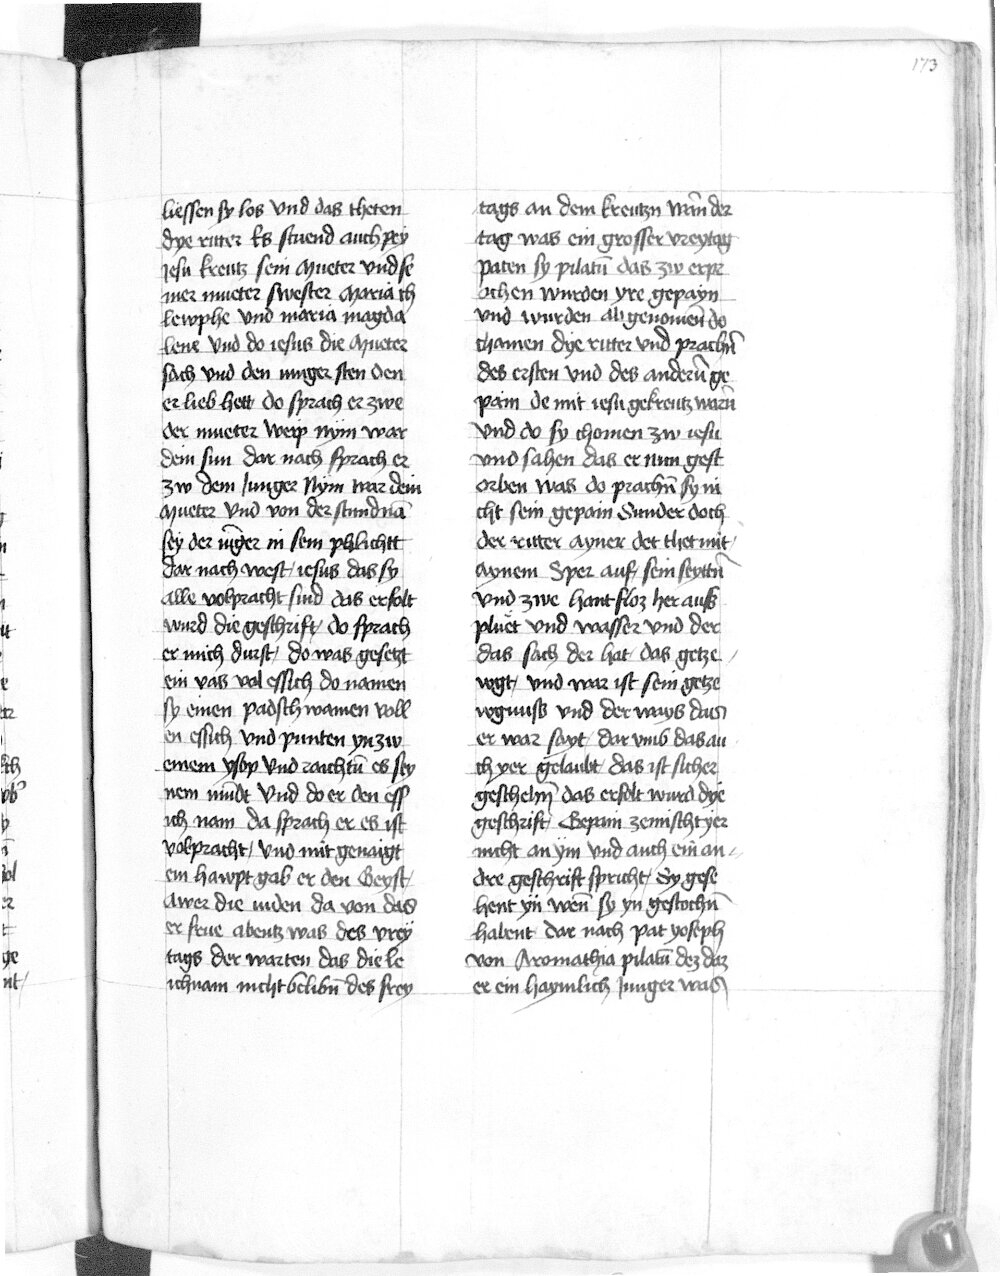 173
liessen sy los vnd das theten
dye ritter Es stuend auch pey
iesu kreutz sein Mueter vnd se
iner mueter swester Maria ch
lewphe vnd maria magda
lene vnd do iesus die Mueter
sach vnd den iunger sten den
er lieb hett do sprach er zwe
der mueter Weip Nym war
dein sun dar nach sprach er
zw dem Junger Nym war dein
Mueter Vnd von der stund nā
sey der iūger in sein phlichtt
dar nach west iesus das sy
alle volpracht sind das erfolt
wurd die geschrift / do sprach
er mich durst / do was gesetzt
ein vas vol essich do namen
sy einen padschwamen voll
en essich vnd punten yn zw
einem ysop vnd raichtn̄ es sey
nem mūdt Vnd do er den ess
ich nam da sprach er es ist
volpracht / vnd mit genaigt
em hawpt gab er den Geyst /
Awer die iuden da von das
er frue abentz was des vrey
tags der warten das die le
ichnam nicht belibn̄ des frey
tags an dem kreutzn wān der
tag was ein grosser vreytag
paten sy pilatū das zw erpr
ochen wurden yre gepayn
vnd wurden ab genomen do
chamen dye ritter vnd prachn̄
des ersten vnd des andern̄ ge
pain de mit iesu gekreutz warn̄
vnd do sy chomen zw iesu
vnd sahen das er nun gest
orben was do prachn̄ sy ni
cht sein gepain Sunder doch
der ritter ayner der thet mit /
Aynem Sper auf / sein seyttn̄
vnd zwe hant floz her auss
pluet vnd wasser vnd der
das sach der hat / das getze /
wgt / vnd war ist sein getze
wgnuss vnd der ways das
er war sayt / dar vmb das au
ch yer gelaubt / das ist sicher
geschehn̄ das erfolt wurd dye
geschrift / Gepain zemischt yer
nicht an ym vnd auch ein an /
dre geschrift spricht / Sy gese
hent yn wen̄ sy yn gestochn̄
habent dar nach pat yoseph
von Aromathia pilatū dez daz
er ein haymlich Junger was